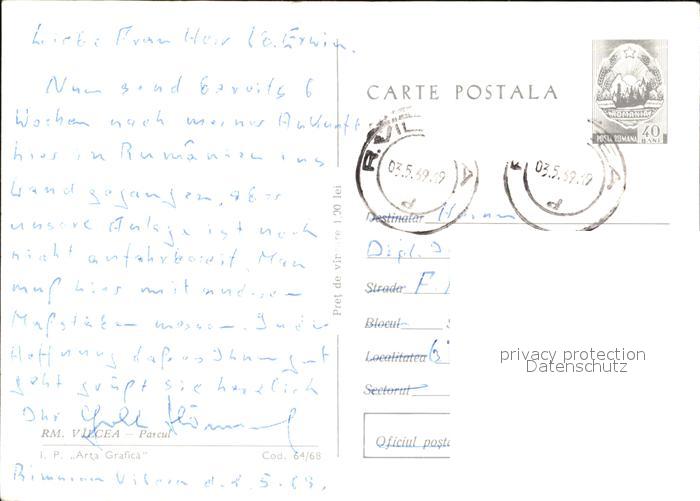 Liebe Frau Herr Erwin.
Nun sind bereits 6
Wochen nach meiner Ankunft
hier in Rumänien ins
Land gegangen, aber
unsere Anlage ist noch
nicht anfahrbereit. Man
muß hier mit anderen
Maßstäben messen. In der
Hoffnung daß es Ihnen gut
geht grüßt sie herzlich
Ihr
RM. VÎLCEA – Parcul
I. P. „Arta Grafică”
Cod. 64/68
Rimnicu Vilcea d. 2.5.69.
Preț de vînzare 1,20 lei
CARTE POSTALA
ROMANIA
POSTA ROMANA
40
BANI
03.5.69.19
03.5.69.19
Destinatar Herrn
Dipl.
Strada F.
Blocul
Localitatea
Sectorul
Oficiul poșta
privacy protection
Datenschutz